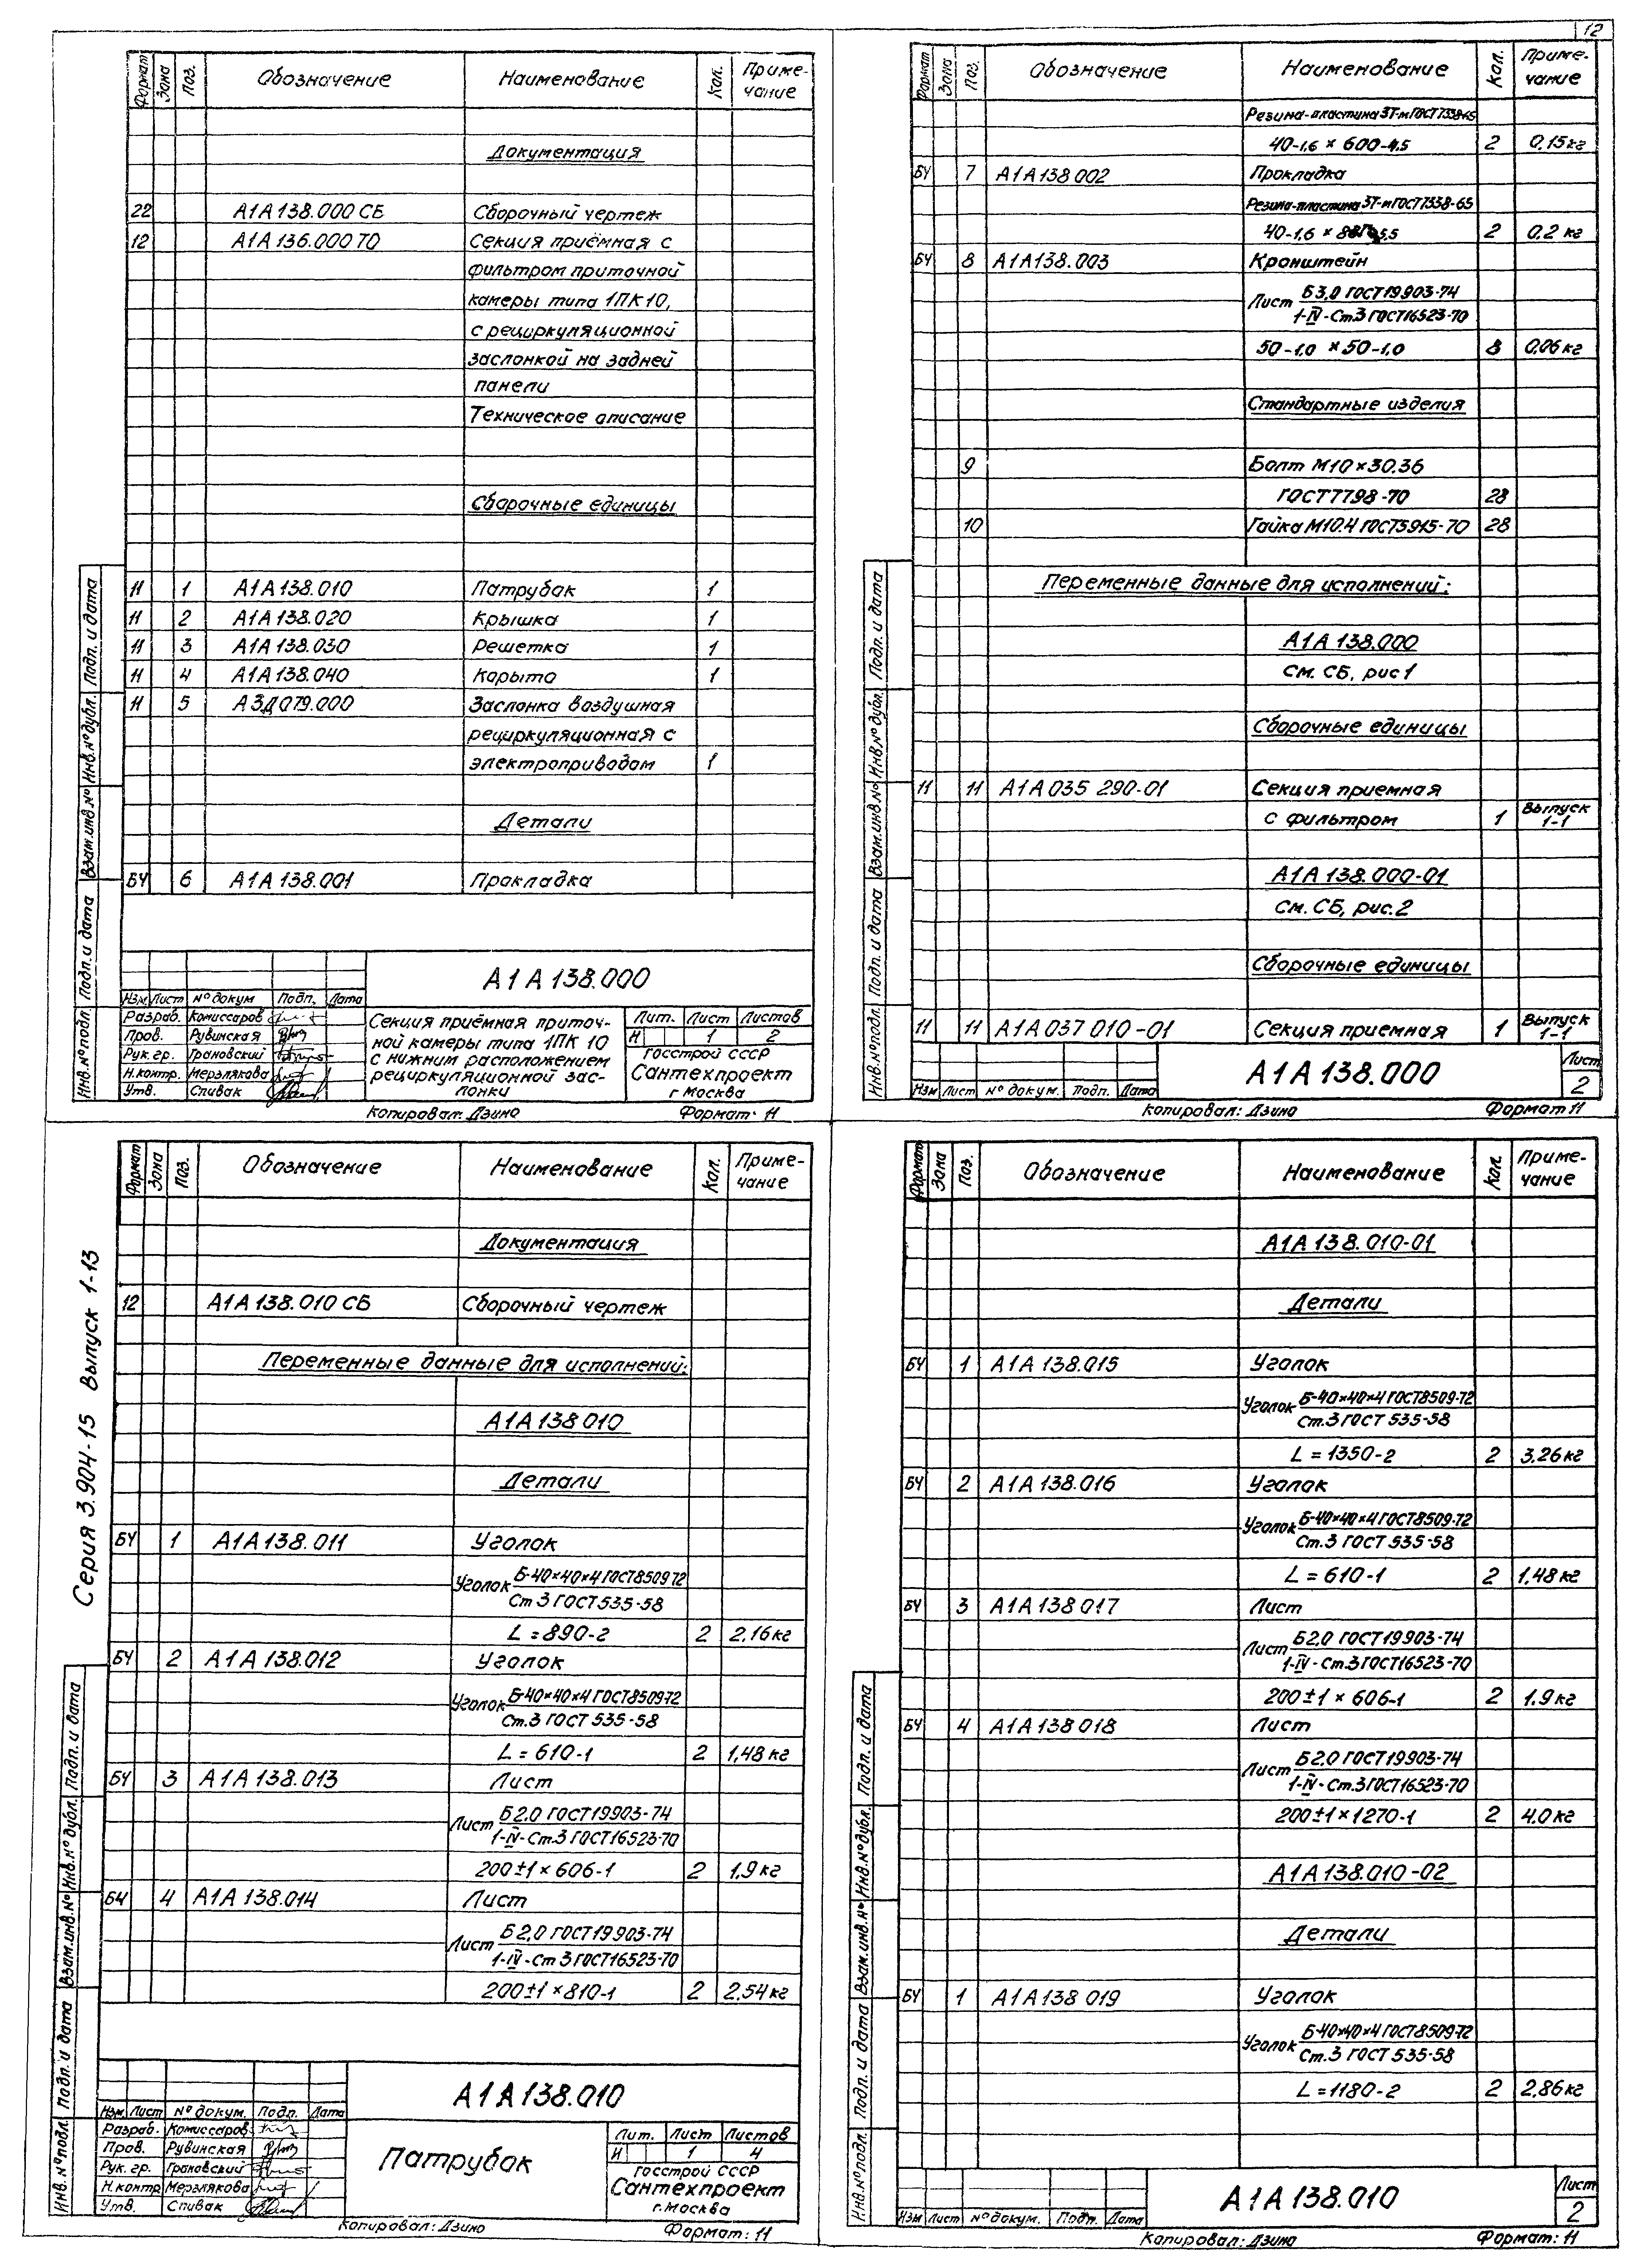 12
Формат Зона Поз. Обозначение Наименование Кол. Приме-
чание
Документация
22 А1А 138.000 СБ Сборочный чертеж
12 А1А 136.000 ТО Секция приёмная с
фильтром приточной
камеры типа 1ПК 10,
с рециркуляционной
заслонкой на задней
панели
Техническое описание
Сборочные единицы
11 1 А1А 138.010 Патрубок 1
11 2 А1А 138.020 Крышка 1
11 3 А1А 138.030 Решетка 1
11 4 А1А 138.040 Корыто 1
11 5 А3Д 079.000 Заслонка воздушная
рециркуляционная с
электроприводом 1
Детали
БЧ 6 А1А 138.001 Прокладка
А1А 138.000
Изм. Лист № докум Подп. Дата
Разраб. Комиссаров
Пров. Рувинская
Рук. гр. Грановский
Н.контр. Мерзлякова
Утв. Спивак
Секция приёмная приточ-
ной камеры типа 1ПК 10
с нижним расположением
рециркуляционной зас-
лонки
Лит. Лист Листов
И 1 2
Госстрой СССР
Сантехпроект
г Москва
Копировал: Дзино Формат: 11
Инв.№подл. Подп. и дата Взам.инв.№ Инв.№дубл. Подп. и дата
Формат Зона Поз. Обозначение Наименование Кол. Приме-
чание
Резина-пластина 3Т-м ГОСТ 7338-65
40-1,6 × 600-4,5 2 0,15 кг
БЧ 7 А1А 138 002 Прокладка
Резина-пластина 3Т-м ГОСТ 7338-65
40-1,6 × 2 0,2 кг
БЧ 8 А1А 138.003 Кронштейн
Лист Б 3,0 ГОСТ 19903-74
1-IV-Ст.3 ГОСТ 16523-70
50-1,0 × 50-1,0 8 0,06 кг
Стандартные изделия
9 Болт М10×30.36
ГОСТ 7798-70 28
10 Гайка М10.4 ГОСТ 5915-70 28
Переменные данные для исполнений:
А1А 138.000
См. СБ, рис 1
Сборочные единицы
11 11 А1А 035 290-01 Секция приемная
с фильтром 1 Выпуск
1-1
А1А 138.000-01
См. СБ, рис. 2
Сборочные единицы
11 11 А1А 037 010-01 Секция приемная 1 Выпуск
1-1
Изм Лист № докум. Подп. Дата
А1А 138.000
Лист
2
Копировал: Дзино Формат 11
Инв.№подл. Подп. и дата Взам.инв.№ Инв.№дубл. Подп. и дата
Серия 3.904-15 Выпуск 1-13
Формат Зона Поз. Обозначение Наименование Кол. Приме-
чание
Документация
12 А1А 138.010 СБ Сборочный чертеж
Переменные данные для исполнений:
А1А 138 010
Детали
БЧ 1 А1А 138.011 Уголок
Уголок Б-40×40×4 ГОСТ 8509-72
Ст 3 ГОСТ 535-58
L = 890-2 2 2,16 кг
БЧ 2 А1А 138.012 Уголок
Уголок Б-40×40×4 ГОСТ 8509-72
Ст.3 ГОСТ 535-58
L = 610-1 2 1,48 кг
БЧ 3 А1А 138.013 Лист
Лист Б 2,0 ГОСТ 19903-74
1-IV-Ст.3 ГОСТ 16523-70
200±1 × 606-1 2 1,9 кг
БЧ 4 А1А 138.014 Лист
Лист Б 2,0 ГОСТ 19903-74
1-IV-Ст 3 ГОСТ 16523-70
200±1 × 810-1 2 2,54 кг
А1А 138.010
Изм. Лист № докум. Подп. Дата
Разраб. Комиссаров
Пров. Рувинская
Рук. гр. Грановский
Н.контр Мерзлякова
Утв. Спивак
Патрубок
Лит. Лист Листов
И 1 4
Госстрой СССР
Сантехпроект
г. Москва
Копировал: Дзино Формат: 11
Инв.№подл. Подп. и дата Взам.инв.№ Инв.№дубл. Подп. и дата
Формат Зона Поз. Обозначение Наименование Кол. Приме-
чание
А1А 138.010-01
Детали
БЧ 1 А1А 138.015 Уголок
Уголок Б-40×40×4 ГОСТ 8509-72
Ст.3 ГОСТ 535-58
L = 1350-2 2 3,26 кг
БЧ 2 А1А 138.016 Уголок
Уголок Б-40×40×4 ГОСТ 8509-72
Ст.3 ГОСТ 535-58
L = 610-1 2 1,48 кг
БЧ 3 А1А 138 017 Лист
Лист Б 2,0 ГОСТ 19903-74
1-IV-Ст.3 ГОСТ 16523-70
200±1 × 606-1 2 1,9 кг
БЧ 4 А1А 138 018 Лист
Лист Б 2,0 ГОСТ 19903-74
1-IV-Ст.3 ГОСТ 16523-70
200±1 × 1270-1 2 4,0 кг
А1А 138.010-02
Детали
БЧ 1 А1А 138 019 Уголок
Уголок Б-40×40×4 ГОСТ 8509-72
Ст.3 ГОСТ 535-58
L = 1180-2 2 2,86 кг
Изм Лист № докум. Подп. Дата
А1А 138.010
Лист
2
Копировал: Дзино Формат: 11
Инв.№подл. Подп. и дата Взам.инв.№ Инв.№дубл. Подп. и дата